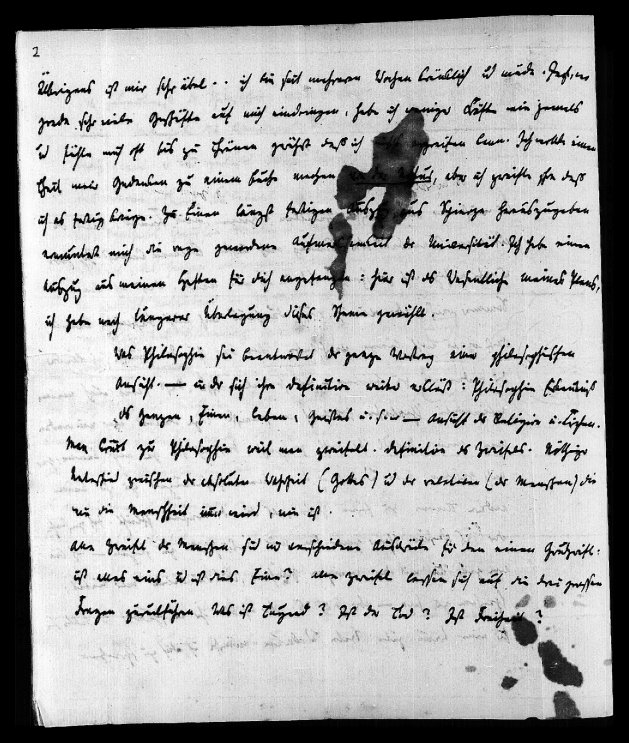 2
Übrigens ist mir sehr übel .. ich bin seit mehreren Wochen kränklich u müde.
grade sehr viele Geschäfte auf mich eindringen, habe ich weniger Kräfte wie jemals
u fühle mich oft bis zu Thränen gereizt daß ich nicht arbeiten kann. Ich wollte einen
Theil meiner Gedanken zu einem Buche machen, aber ich zweifle daß
ich es fertig bringe. Zu einem längst fertigen Auszug aus herauszugeben
ermuntert mich die rege gewordene Aufmerksamkeit der Universität. Ich habe einen
Auszug aus meinen Heften für dich angefangen: hier ist das Wesentliche meines Plans,
ich habe nach längerer Überlegung dieses Thema gewählt.
Was Philosophie sei beantwortet der ganze Vortrag einer philosophischen
Ansicht. — u der sich ihre Definition weiter : Philosophie Erkenntniß
des Ganzen, Einen, Lebens, Geistes u.s.w — Ansicht der Religion u.
Man kommt zu Philosophie weil man zweifelt. Definition des Zweifels. Nöthige
zwischen der absoluten Wahrheit (Gottes) u der relativen (der Menschen) die
nie die Menschheit wird, nie ist.
Alle Zweifel der Menschen sind nur verschiedene Ausdrücke für den einen
ist alles eins u ist dies Eine? Alle Zweifel lassen sich auf die drei grossen
Fragen zurückführen Was ist Tugend? Ist der Tod? Ist Freiheit?